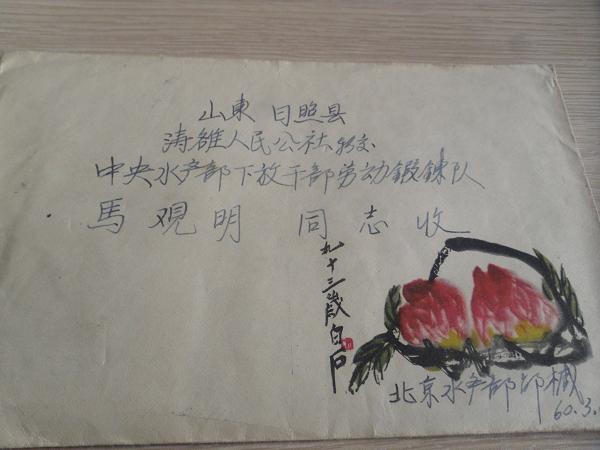 山東 日照县
涛雒人民公社 转交
中央水产部下放干部劳动鍛鍊队
馬观明 同志收
九十三歲白石
北京水产部邱械
60.3.